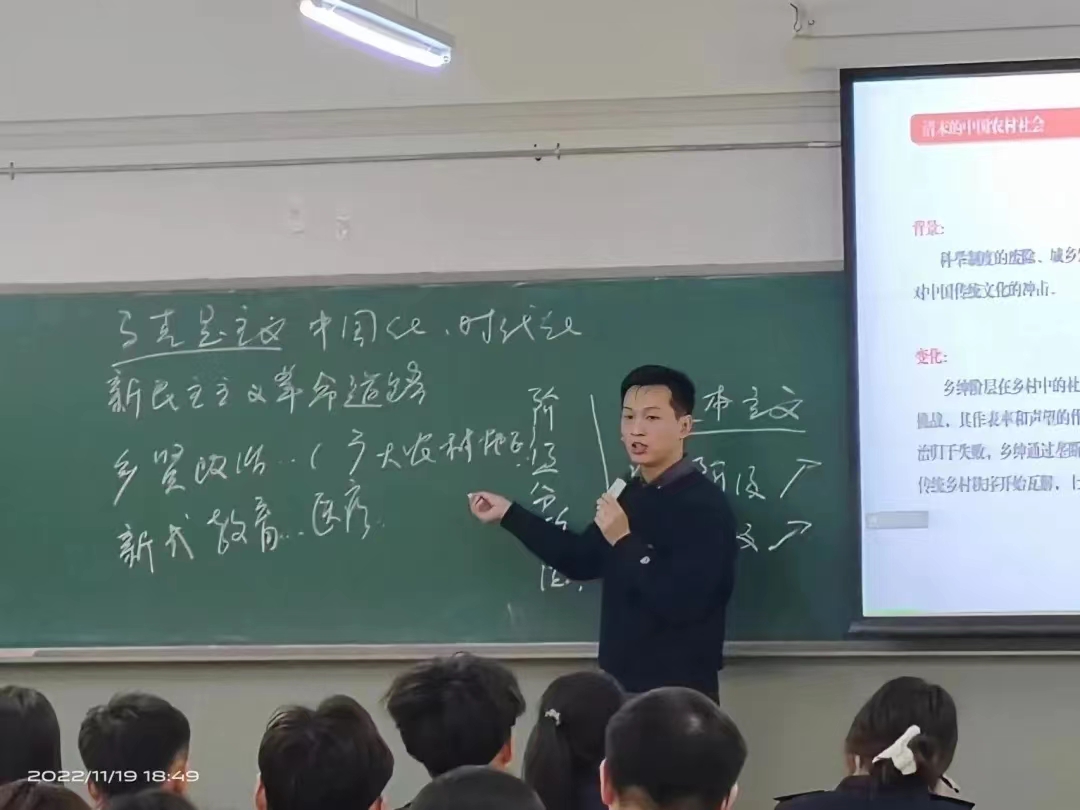 马克思主义中国化、时代化
新民主主义革命道路
乡贤政治…(广大农村地区
新式教育…医疗
阶
级
分
本主义
阶级↗
↗
清末的中国农村社会
背景:
科举制度的废除、城乡
对中国传统文化的冲击.
变化:
乡绅阶层在乡村中的
挑战,其作表率和声望的作
治归于失败,乡绅通过垄断
传统乡村秩序开始瓦解,
2022/11/19 18:49